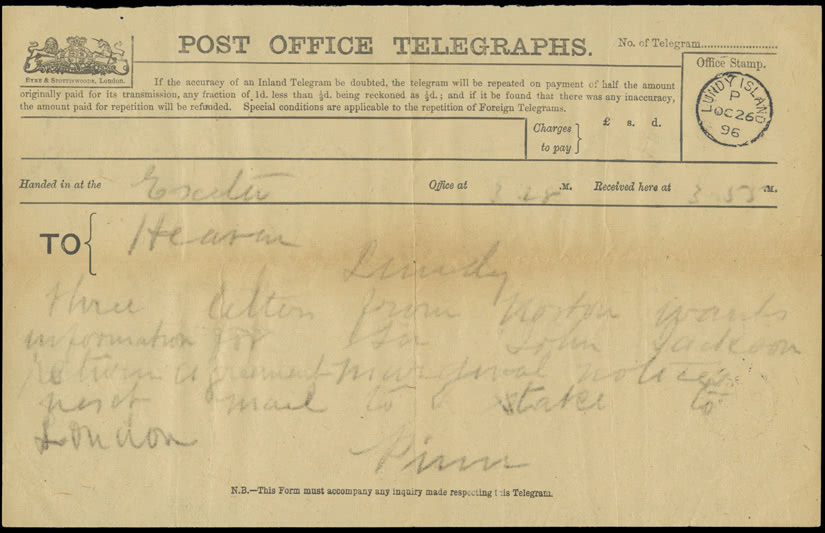 POST OFFICE TELEGRAPHS.
No. of Telegram
EYRE & SPOTTISWOODE, London.
If the accuracy of an Inland Telegram be doubted, the telegram will be repeated on payment of half the amount
originally paid for its transmission, any fraction of 1d. less than ½d. being reckoned as ½d.; and if it be found that there was any inaccuracy,
the amount paid for repetition will be refunded. Special conditions are applicable to the repetition of Foreign Telegrams.
Office Stamp.
LUNDY ISLAND
P
OC 26
96
Charges
to pay
£ s. d.
Handed in at the Exeter Office at 3.28 M. Received here at 3.55 M.
TO Heaven
Lundy
three letters from Norton wants
information for Sir John Jackson
return agreement marginal notices
next mail to take to
London
Pinn
N.B.—This Form must accompany any inquiry made respecting this Telegram.